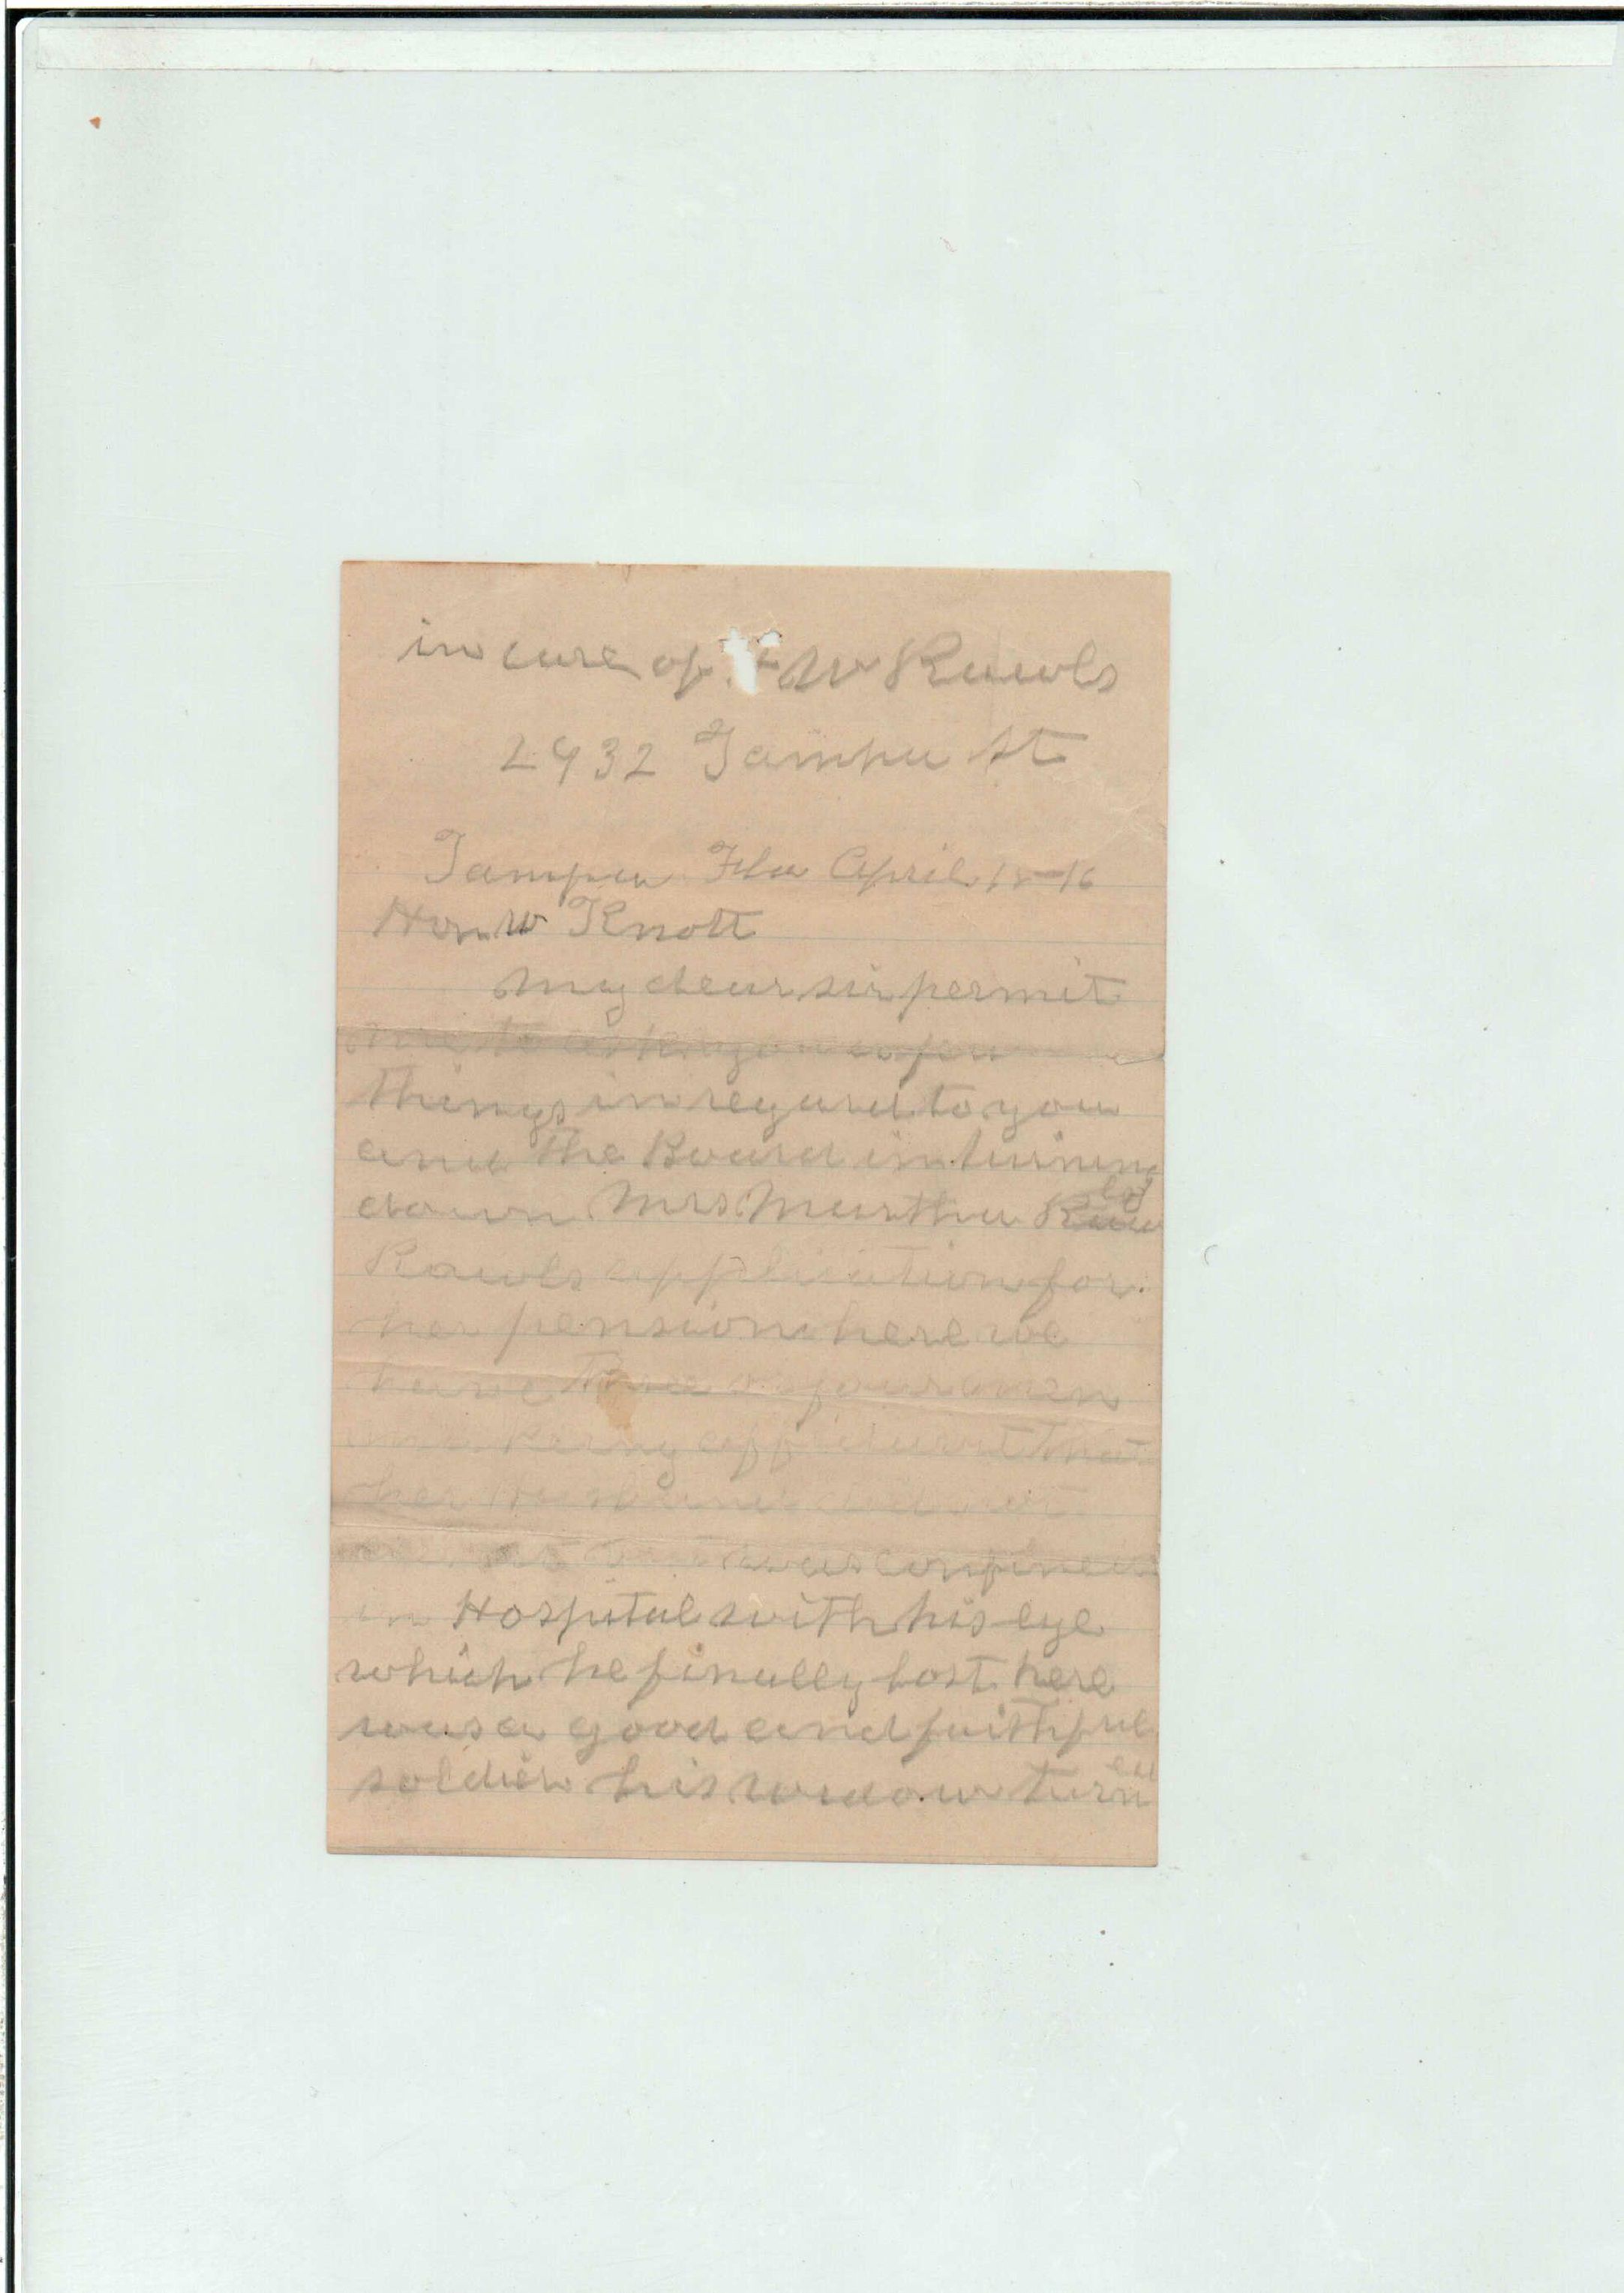 in care of W Rawls
2932 Tampa St
Tampa Fla April 18-16
Hon W Knott
My dear sir permit
me to ask you a few
things in regard to you
and the Board in turning
down Mrs Martha
Rawls application for
her pension here we
have three or four men
making affidavit that
her Husband did not
was confined
in Hospital with his eye
which he finally lost here
was a good and faithful
soldier his widow turn ed